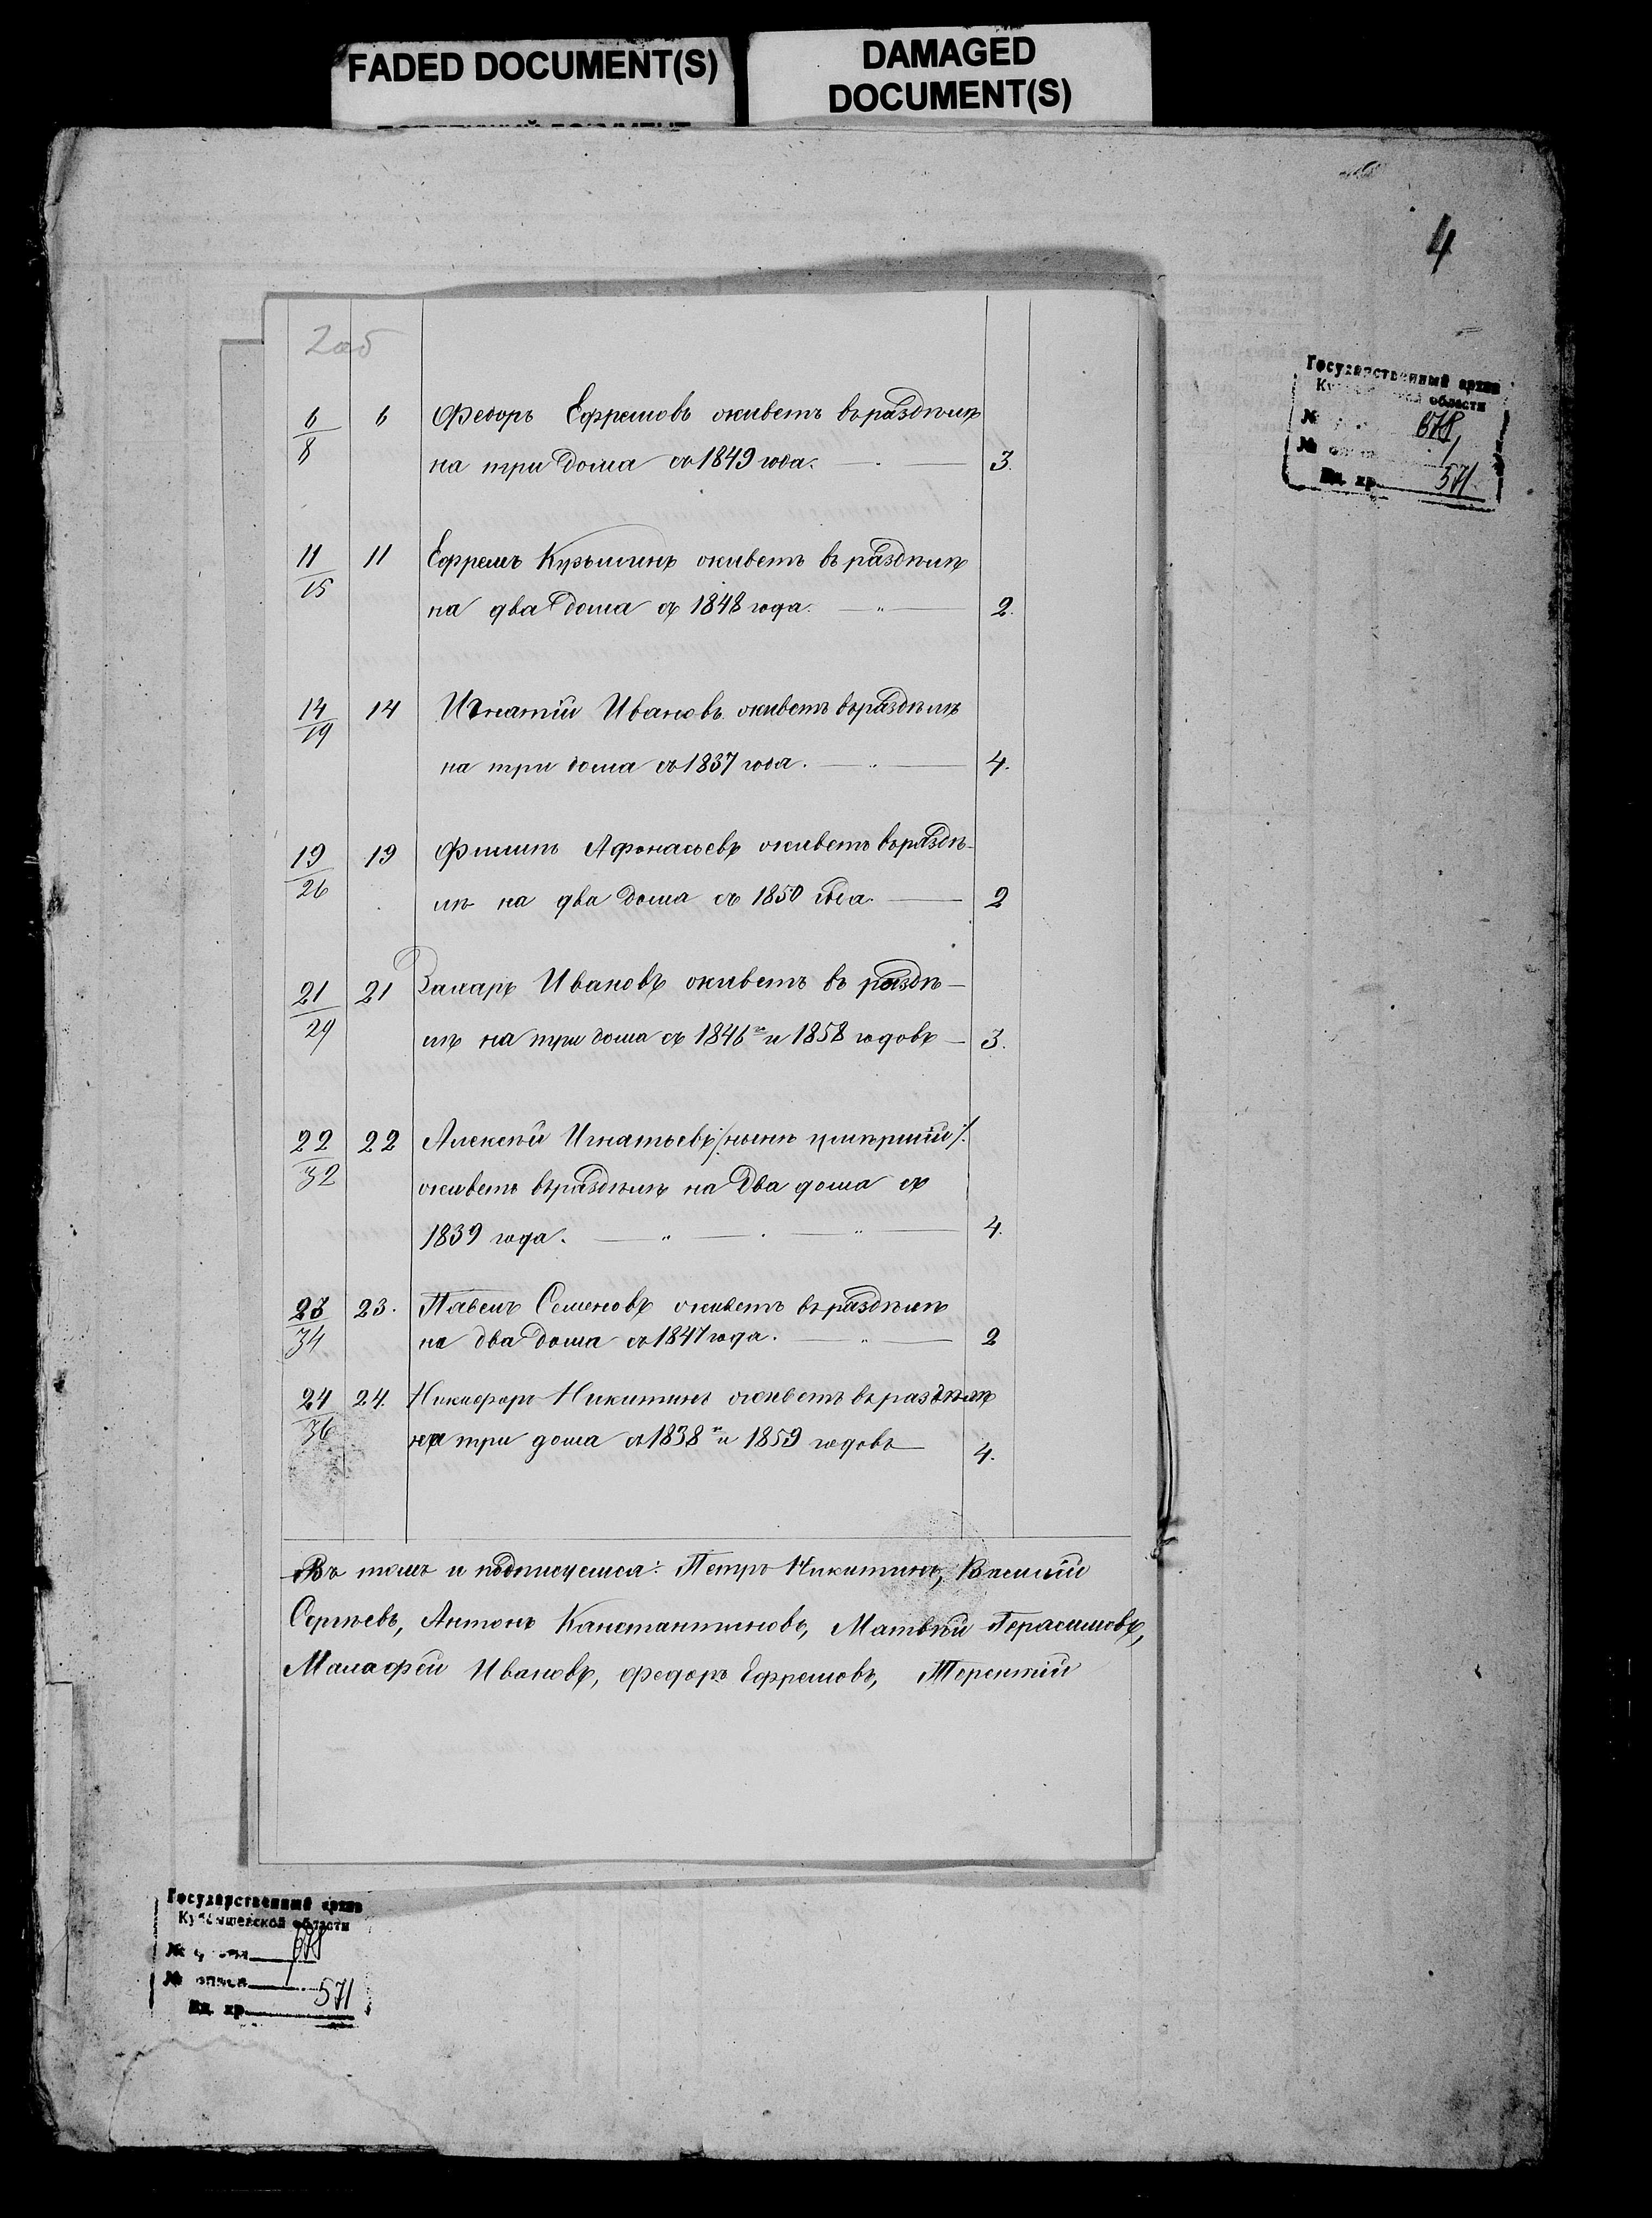 FADED DOCUMENT(S)
DAMAGED
DOCUMENT(S)
4
Государственный архив
области
№ 678
№
Ед. хр. 571
2об
6/8 6 Федоръ Ефремовъ живетъ въ раздѣлѣ
на три дома съ 1849 года. 3.
11/15 11 Ефремъ Кузьминъ живетъ въ раздѣлѣ
на два дома съ 1848 года. 2.
14/19 14 Игнатій Ивановъ живетъ въ раздѣлѣ
на три дома съ 1837 года. 4.
19/26 19 Филипъ Афонасьевъ живетъ въ раздѣ-
лѣ на два дома съ 1850 года. 2
21/29 21 Захаръ Ивановъ живетъ въ раздѣ-
лѣ на три дома съ 1846го и 1858 годовъ 3.
22/32 22 Алексѣй Игнатьевъ /: нынѣ умершій :/
живетъ въ раздѣлѣ на два дома съ
1839 года. 4.
23/34 23. Павелъ Семеновъ живетъ въ раздѣлѣ
на два дома съ 1847 года. 2
24/36 24. Никифоръ Никитинъ живетъ въ раздѣлѣ
на три дома съ 1838го и 1859 годовъ 4.
Въ томъ и подписуемся: Петръ Никитинъ, Василій
Сергѣевъ, Антонъ Канстантиновъ, Матвѣй Герасимовъ,
Малафѣй Ивановъ, Федоръ Ефремовъ, Терентій
Государственный архив
Куйбышевской области
№ фонда 678
№ описи
Ед. хр. 571